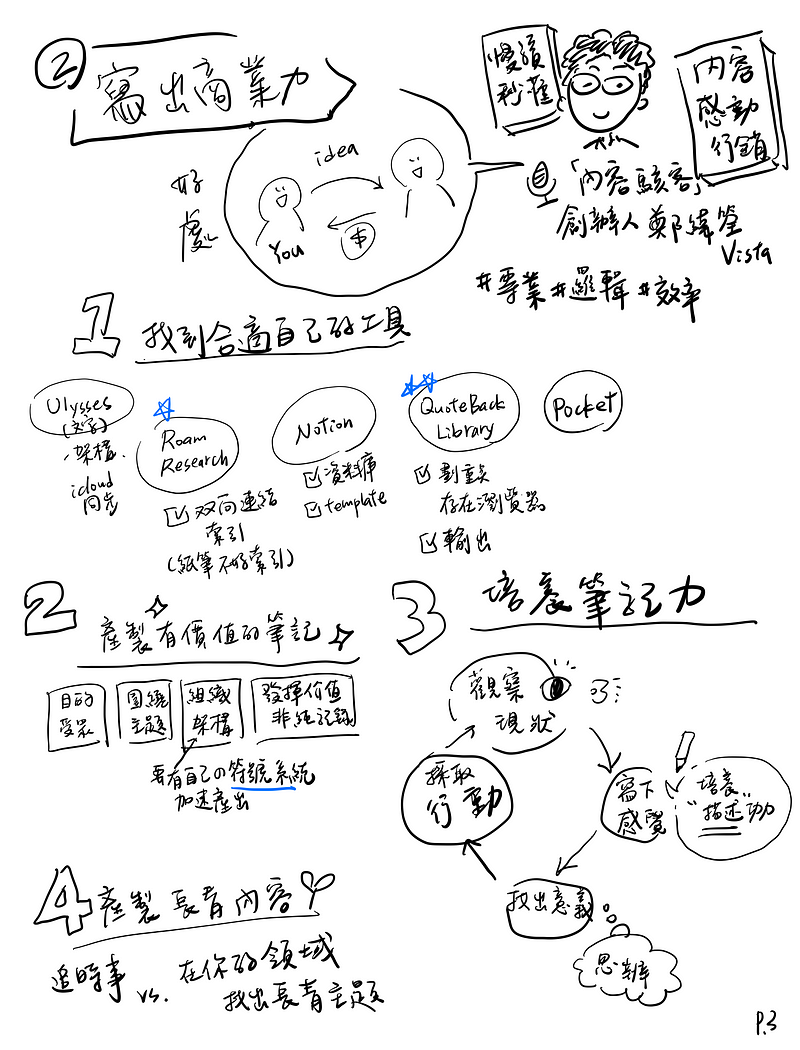 2
寫出商業力
慢讀
秒懂
內容
感動
行銷
好
處
idea
You
$
「內容駭客」
創辦人 鄭緯筌
Vista
#專業 #邏輯 #效率
1 找到合適自己的工具
Ulysses
(文字)
架構
icloud
同步
Roam
Research
双向連結
索引
(紙筆不好索引)
Notion
資料庫
template
QuoteBack
Library
劃重點
存在瀏覽器
輸出
Pocket
2 產製有價值的筆記
目的
受眾
圍繞
主題
組織
架構
發揮价值
非純記錄
要有自己の符號系統
加速產出
3 培養筆記力
觀察
現狀
寫下
感覺
培養
"描述"功力
找出意義
思辨
採取
行動
4 產製長青內容
追時事
vs.
在你的領域
找出長青主題
P.3